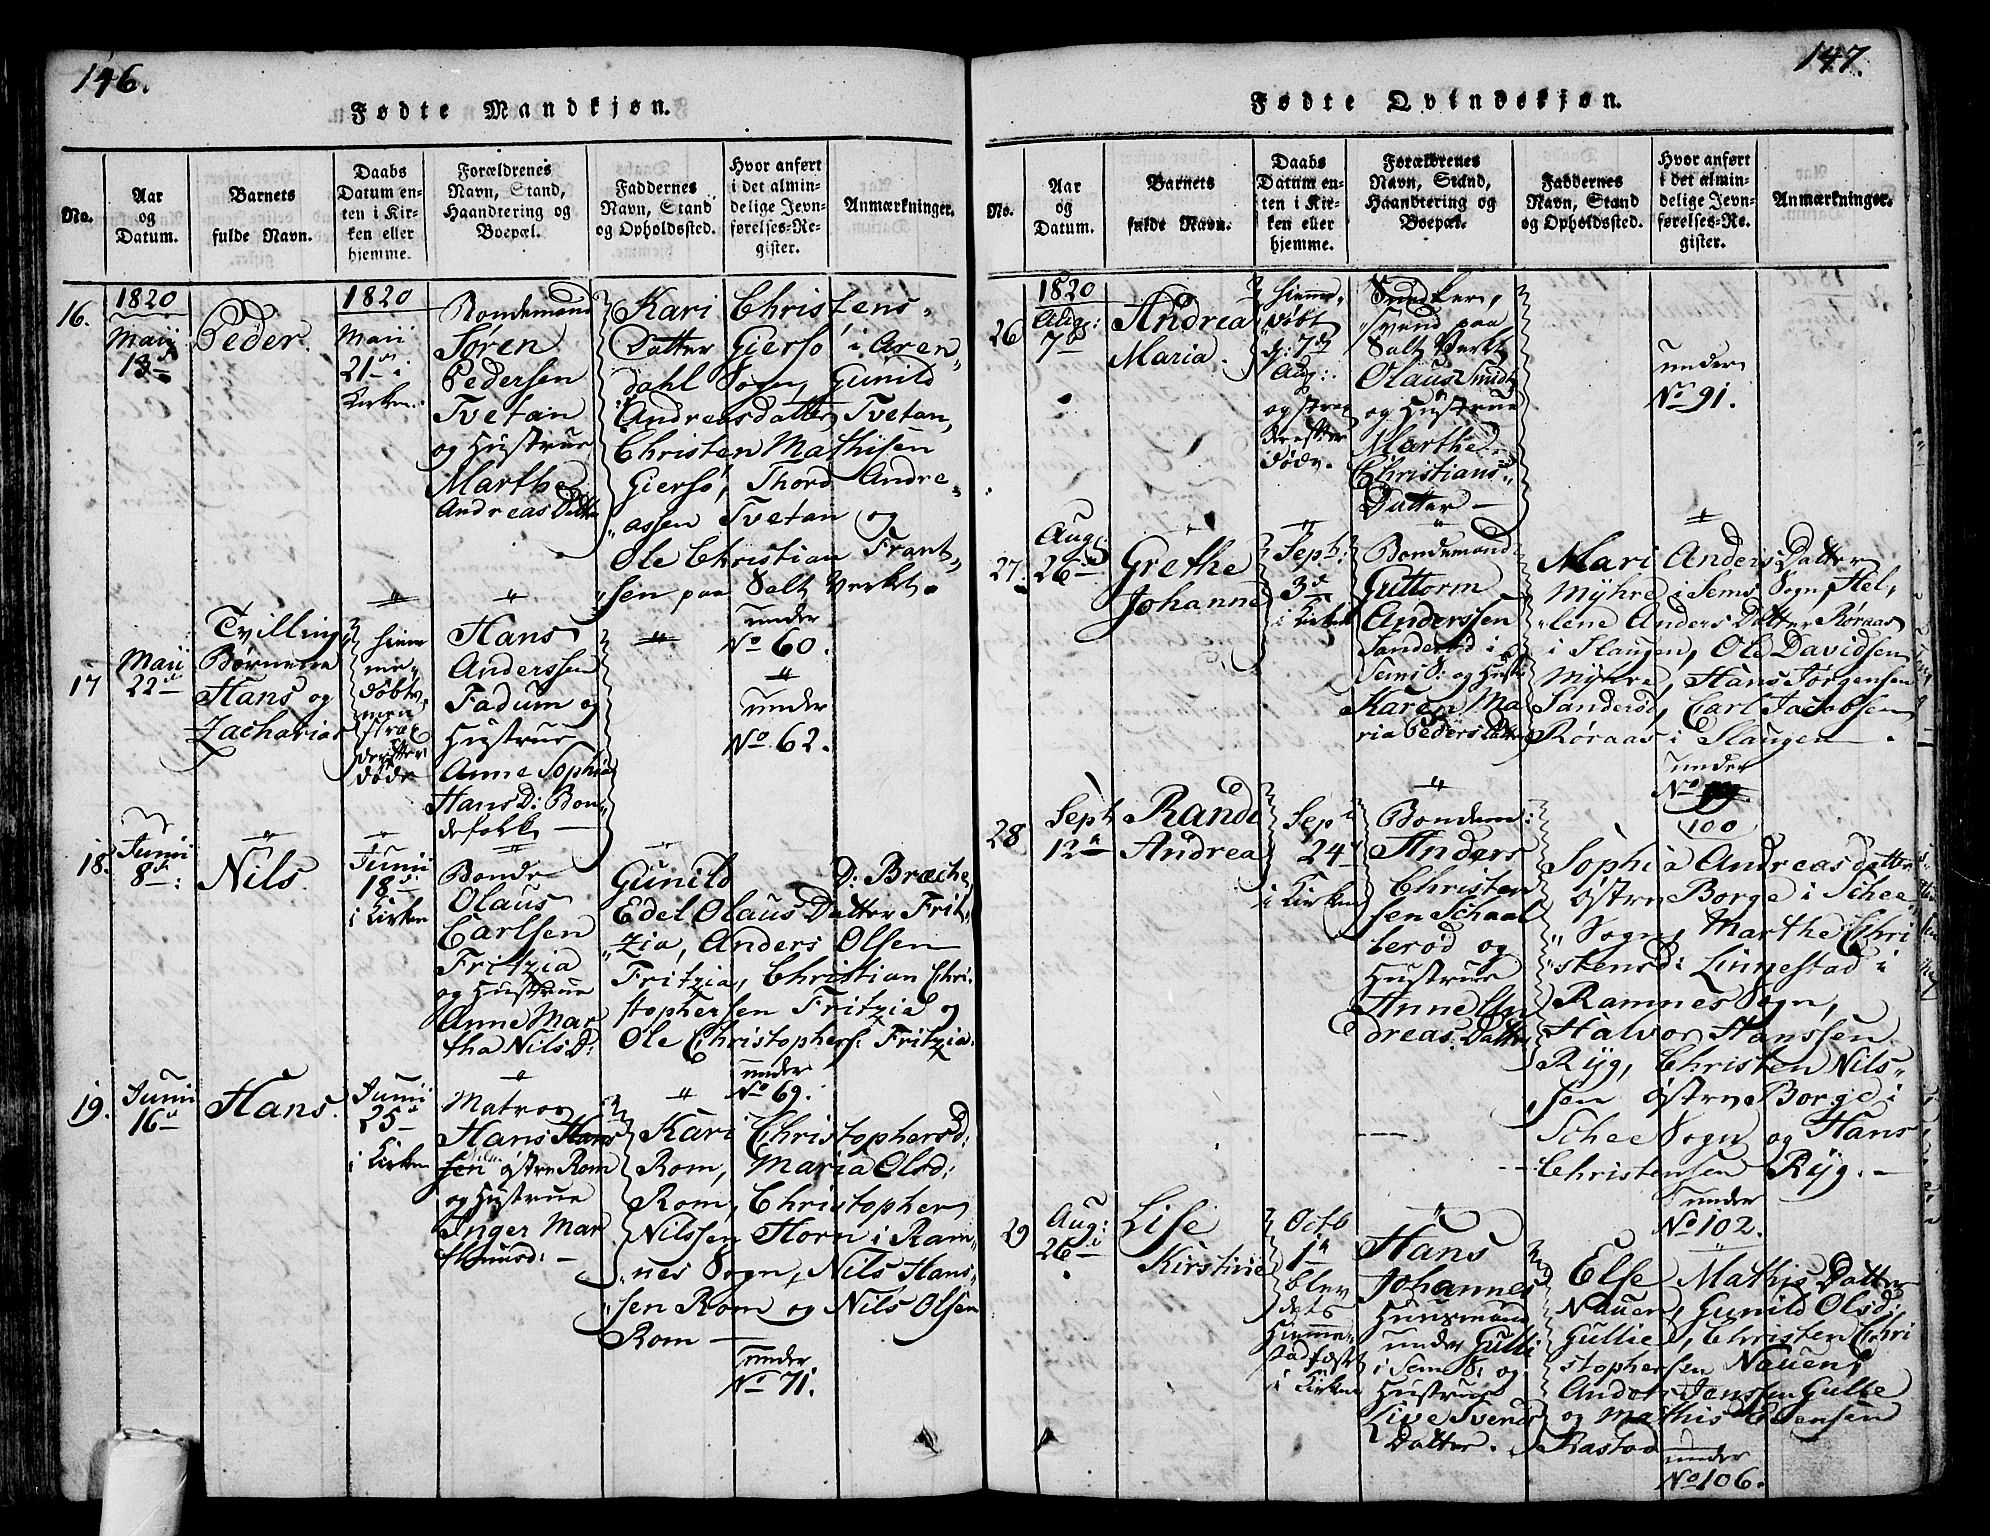 146.
Fødte Mandkjøn.
No.
Aar
og
Datum.
Barnets
fulde Navn.
Daabs
Datum en-
ten i Kir-
ken eller
hjemme.
Forældrenes
Navn, Stand,
Haandtering og
Boepæl.
Faddernes
Navn, Stand
og Opholdssted.
Hvor anført
i det almin-
delige Jevn-
førelses-Re-
gister.
Anmærkninger.
16.
1820
Maii
13d
Peder.
1820
Maii
21d i
Kirken.
Bondemand
Søren
Pedersen
Tvetan
og Hustrue
Marthe
Andreas Datter
Kari Christens-
Datter Giersø i Aren-
dahl Sogn, Gunild
Andreasdatter Tvetan,
Christen Mathisen
Giersø, Thord Andre-
assen Tvetan og
Ole Christian Frant-
sen paa Salt Verket.
under
No 60.
17
Maii
22d
Tvilling
Børnene
Hans og
Zacharias
hiem-
me-
døbt,
men
strax
derefter
døde
Hans
Anderssen
Fadum og
Hustrue
Anne Sophia
Hans D: Bon-
defolk
under
No 62.
18.
Junii
8d:
Nils.
Junii
18d
i Kirken
Bonde
Olaus
Carlsen
Fritzia
og Hustrue
Anne Mar
tha Nils D:
Gunild D: Bræche,
Edel Olaus Datter Frit-
zia, Anders Olsen
Fritzia, Christian Chri-
stophersen Fritzia og
Ole Christophers: Fritzia.
under
No 69.
19.
Junii
16d
Hans.
Junii
25d
i Kirken
Matros
Hans Hans
sen Nils østre Rom
og Hustrue
Inger Mar
thmusd:
Kari Christophersd:
Rom, Maria Olsd:
Rom, Christopher
Nilssen Horn i Ram-
nes Sogn, Nils Hans-
sen Rom og Nils Olsen
Rom
under
No 71.
147.
Fødte Qvindekjøn.
No.
Aar
og
Datum.
Barnets
fulde Navn.
Daabs
Datum en-
ten i Kir-
ken eller
hjemme.
Forældrenes
Navn, Stand,
Haandtering og
Boepæl.
Faddernes
Navn, Stand
og Opholdssted.
Hvor anført
i det almin-
delige Jevn-
førelses-Re-
gister.
Anmærkninger.
26
1820
Aug:
7d
Andrea
Maria.
hiemme-
døbt
d: 7d
Aug:
og strax
derefter
døde.
Snedker,
svend paa
Salt Verket
Olaus
og Hustrue
Marthe
Christians-
Datter
under
No 91.
27.
Aug:
26d
Grethe
Johanne
Septr:
3d
i Kirken
Bondemand
Guttorm
Anderssen
Sanderød i
Sem S: og Hustr
Karen Ma
ria Peders Datter
Mari Anders Datter
Myhre i Sems Sogn, Hel,
lene Anders Datter Røraas
i Slaugen, Ole Davidsen
Myhre, Hans Jørgensen
Sanderød, Carl Jacobsen
Røraas i Slaugen.
under
No
100
28
Septr
12d
Randi
Andrea
Septr
24d
i Kirken
Bondem:
Anders
Christen
sen Schaal
lerød og
Hustrue
Anne An
dreas: Datter
Sophia Andreas datter
østre Borge i Schee-
Sogn, Marthe Chri
stensd: Linnestad i
Ramnes Sogn,
Halvor Hanssen
Ryg, Christen Nils-
sen østre Borge i
Schee Sogn og Hans
Christensen Ryg.
under
No 102.
29
Aug:
26d
Lise
Kirstine
Octb
1d
blev
dets
Hiemme-
daab fæst
i Kirken
Hans
Johannes
Huusmand
under Gulli
i Sem S: og
Hustrue
Live Svends
Datter.
Else Mathis Datter
Nauen, Gunild Olsd:
Gullie, Christen Chri
stophersen Nauen,
Anders Jenssen Gullie
og Mathis Ellensen
Rastad
under
No 106.